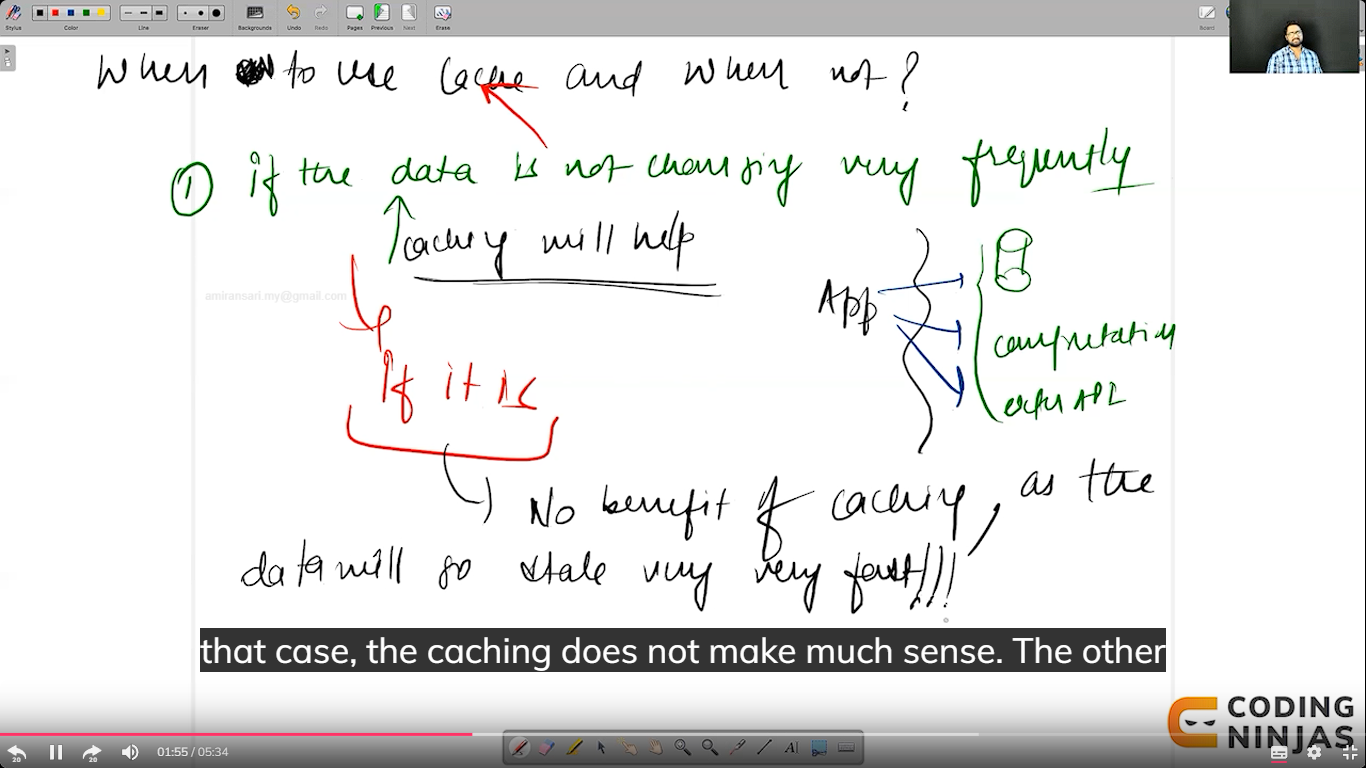 Stylus
Color
Line
Eraser
Backgrounds
Undo
Redo
Pages
Previous
Next
Erase
Board
When to use Cache and when not?
① if the data is not changing very frequently
caching will help
amiransari.my@gmail.com
App
computation
API
if it is
No benefit of caching, as the
data will go stale very very fast!!!
that case, the caching does not make much sense. The other
CODING
NINJAS
20
20
01:55 / 05:34